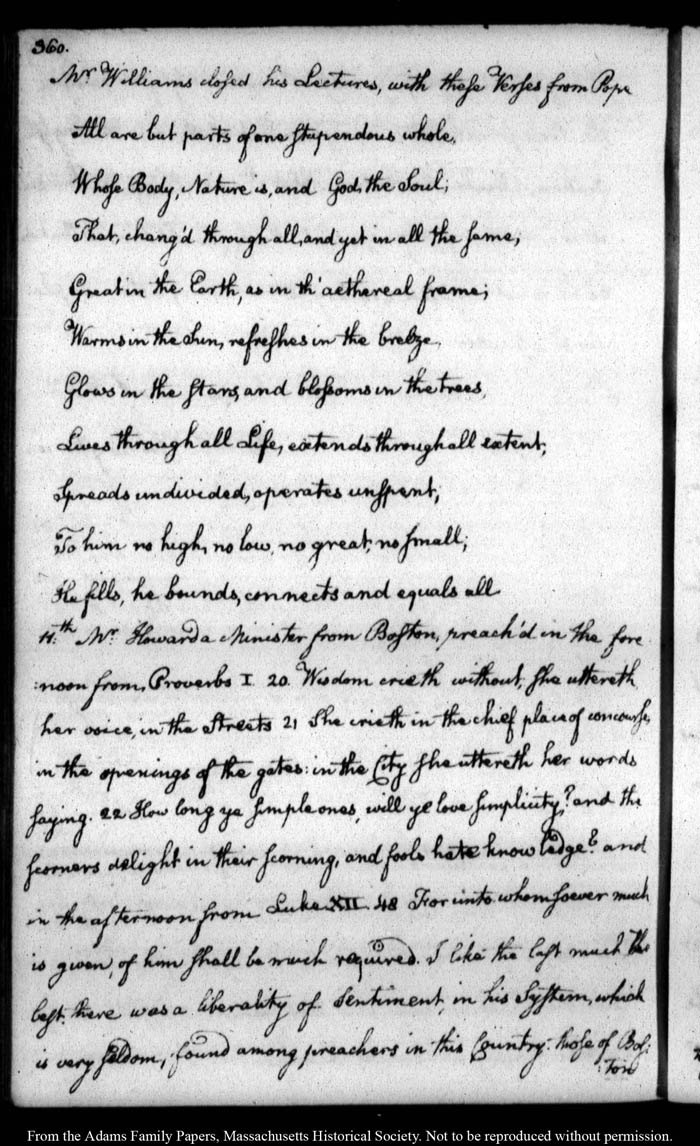 360.
Mr. Williams closed his Lectures, with these Verses from Pope
All are but parts of one stupendous whole,
Whose Body, Nature is, and God, the Soul;
That, chang'd through all, and yet in all the same,
Great in the Earth, as in th' aethereal frame;
Warms in the Sun, refreshes in the breeze,
Glows in the stars, and blossoms in the trees,
Lives through all Life, extends through all extent,
Spreads undivided, operates unspent,
To him no high, no low, no great, no small;
He fills, he bounds, connects and equals all
11.th Mr. Howard a Minister from Boston, preach'd in the fore
:noon from, Proverbs I 20. Wisdom crieth without, She uttereth
her voice, in the Streets 21 She crieth in the chief place of concourse,
in the openings of the gates: in the City She uttereth her words
saying. 22 How long ye simple ones, will ye love simplicity? and the
scorners delight in their scorning, and fools hate knowledge? and
in the afternoon from Luke XII. 48 For unto whomsoever much
is given, of him shall be much required. I like the last much the
best. there was a liberality of Sentiment, in his System, which
is very seldom, found among preachers in this Country. those of Bos:
:ton
From the Adams Family Papers, Massachusetts Historical Society. Not to be reproduced without permission.